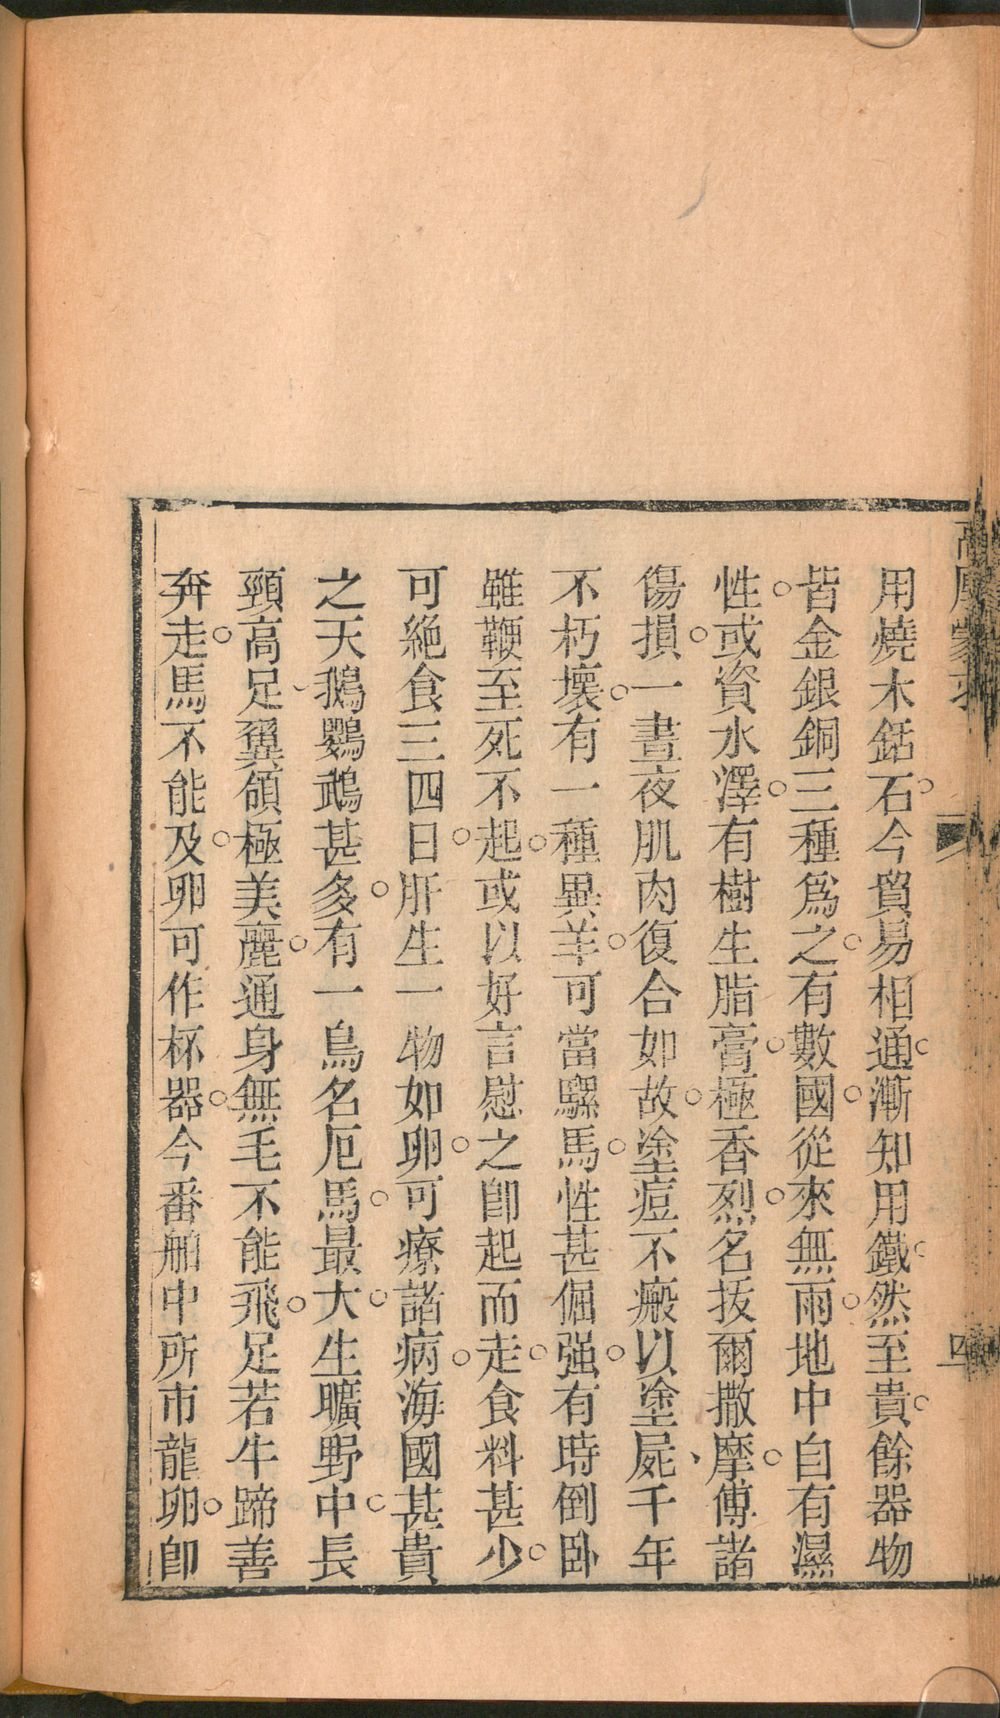 用燒木銛石。今貿易相通。漸知用鐵。然至貴。餘器物
皆金銀銅三種爲之。有數國。從來無雨。地中自有濕
性。或資水澤。有樹生脂膏。極香烈。名拔爾撒摩。傅諸
傷損。一晝夜肌肉復合如故。塗痘不瘢。以塗屍、千年
不朽壞。有一種異羊。可當騾馬。性甚倔强。有時倒卧
雖鞭至死不起。或以好言慰之卽起而走。食料甚少。
可絶食三四日。肝生一物如卵。可療諸病。海國甚貴
之天鵝鸚鵡甚多。有一鳥名厄馬。最大。生曠野中。長
頸高足、翼領極美麗。通身無毛不能飛。足若牛蹄善
奔走。馬不能及。卵可作杯器。今番舶中所市龍卵。卽
四